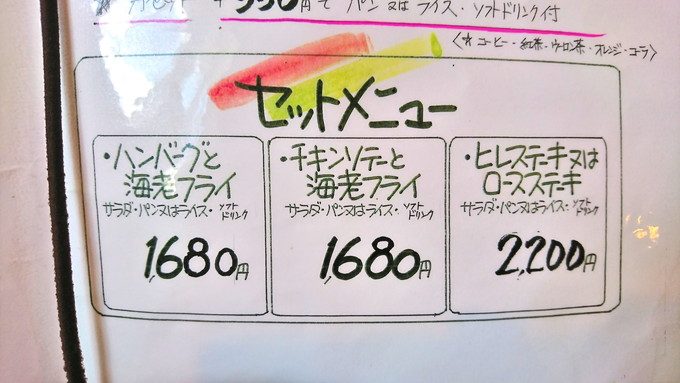 円で パン又はライス・ソフトドリンク付
コーヒー・紅茶・ウーロン茶・オレンジ・コーラ
セットメニュー
・ハンバーグと
海老フライ
サラダ・パン又はライス・ソフトドリンク
1,680円
・チキンソテーと
海老フライ
サラダ・パン又はライス・ソフトドリンク
1,680円
・ヒレステーキ又は
ロースステーキ
サラダ・パン又はライス・ソフトドリンク
2,200円